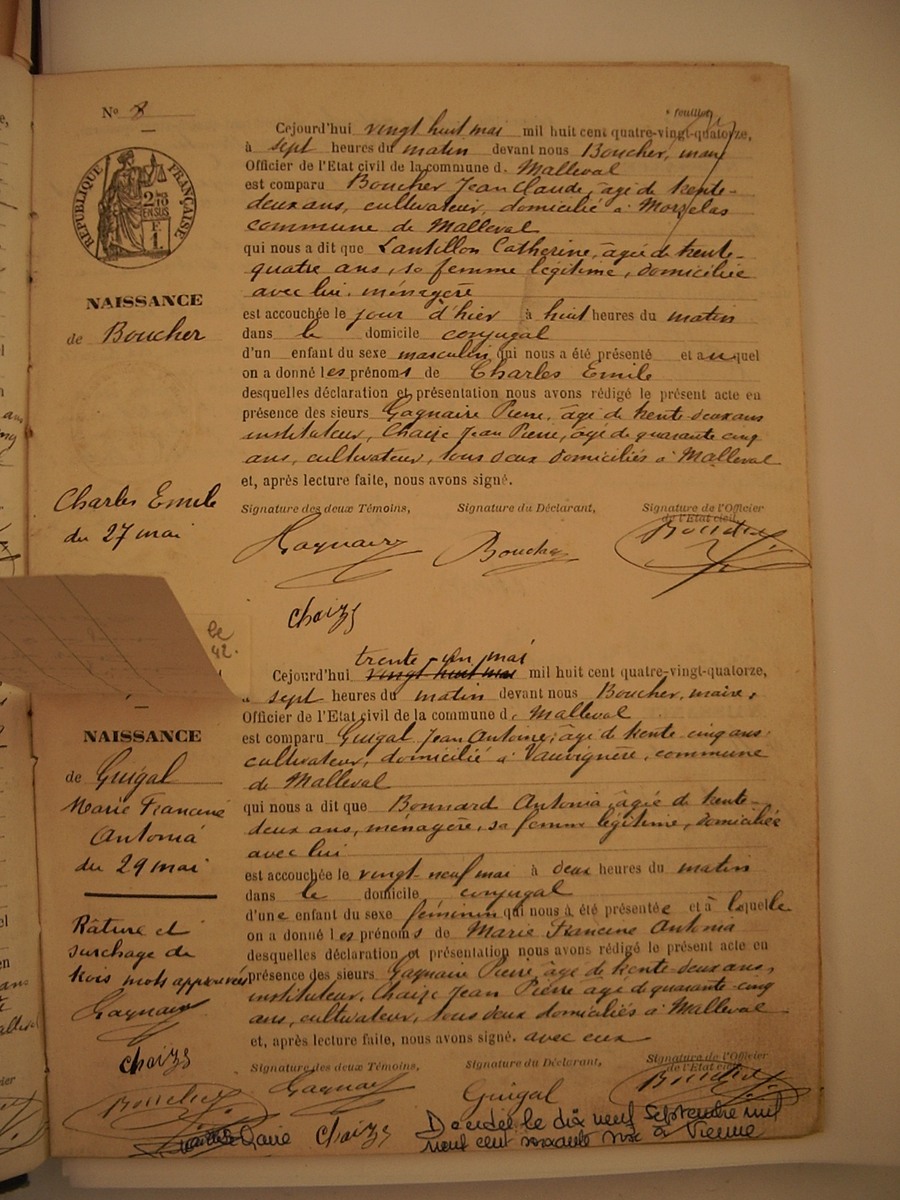 Nº 8
RÉPUBLIQUE FRANÇAISE
NAISSANCE
de Boucher
Charles Emile
du 27 mai
Cejourd'hui vingt huit mai mil huit cent quatre-vingt-quatorze,
à sept heures du matin devant nous Boucher, maire
Officier de l'Etat civil de la commune d. Malleval
est comparu Boucher Jean Claude, âgé de trente-
deux ans, cultivateur, domicilié à
commune de Malleval
qui nous a dit que Lantillon Catherine, âgée de trente-
quatre ans, sa femme légitime, domiciliée
avec lui. ménagère
est accouchée le jour d'hier à huit heures du matin
dans le domicile conjugal
d'un enfant du sexe masculin qui nous a été présenté et auquel
on a donné les prénoms de Charles Emile
desquelles déclaration et présentation nous avons rédigé le présent acte en
présence des sieurs Gagnaire Pierre, âgé de trente-deux ans
instituteur, Chaize Jean Pierre, âgé de quarante cinq
ans, cultivateur, tous deux domiciliés à Malleval
et, après lecture faite, nous avons signé.
Signature des deux Témoins, Signature du Déclarant, Signature de l'Officier
de l'Etat civil,
Gagnaire Boucher Boucher
Chaize
le
42.
NAISSANCE
de Guigal
Marie Francine
Antonia
du 29 mai
Râture et
surchage de
trois mots approuvés
Gagnaire
Chaize
Boucher
trente-un mai
Cejourd'hui vingt huit mai mil huit cent quatre-vingt-quatorze,
à sept heures du matin devant nous Boucher, maire,
Officier de l'Etat civil de la commune d. Malleval
est comparu Guigal Jean Antoine, âgé de trente cinq ans
cultivateur, domicilié à Vauvignère, commune
de Malleval
qui nous a dit que Bonnard Antonia âgée de trente-
deux ans, ménagère, sa femme légitime, domiciliée
avec lui
est accouchée le vingt-neuf mai à deux heures du matin
dans le domicile conjugal
d'une enfant du sexe féminin qui nous à été présentée et à laquelle
on a donné les prénoms de Marie Francine Antonia
desquelles déclaration et présentation nous avons rédigé le présent acte en
présence des sieurs Gagnaire Pierre, âgé de trente-deux ans,
instituteur, Chaize Jean Pierre âgé de quarante-cinq
ans, cultivateur, tous deux domiciliés à Malleval
et, après lecture faite, nous avons signé. avec eux
Signature des deux Témoins, Signature du Déclarant, Signature de l'Officier
de l'Etat civil,
Gagnaire Guigal Boucher
Chaize
Décédée le dix neuf Septembre mil
neuf cent soixante à Vienne